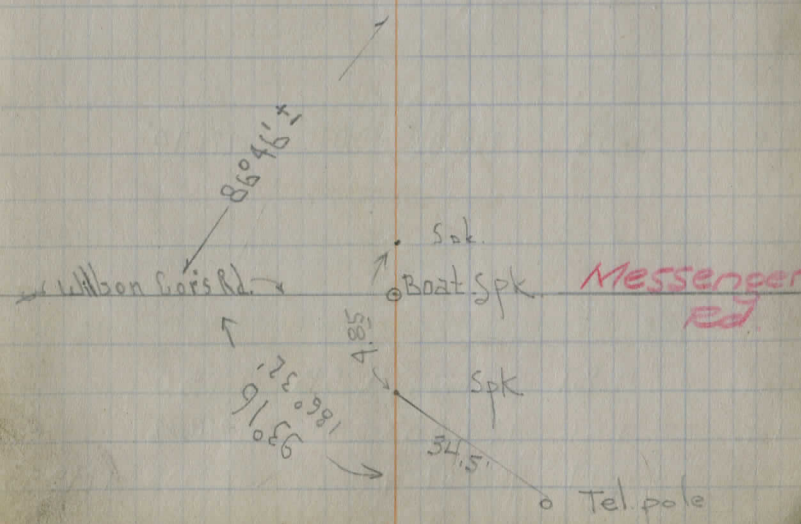 86°46'±
Spk.
Wilson Cor's Rd.
Boat Spk.
Messenger
Rd.
4.85
Spk
93°16'
186° 32'
34.5'
Tel. pole